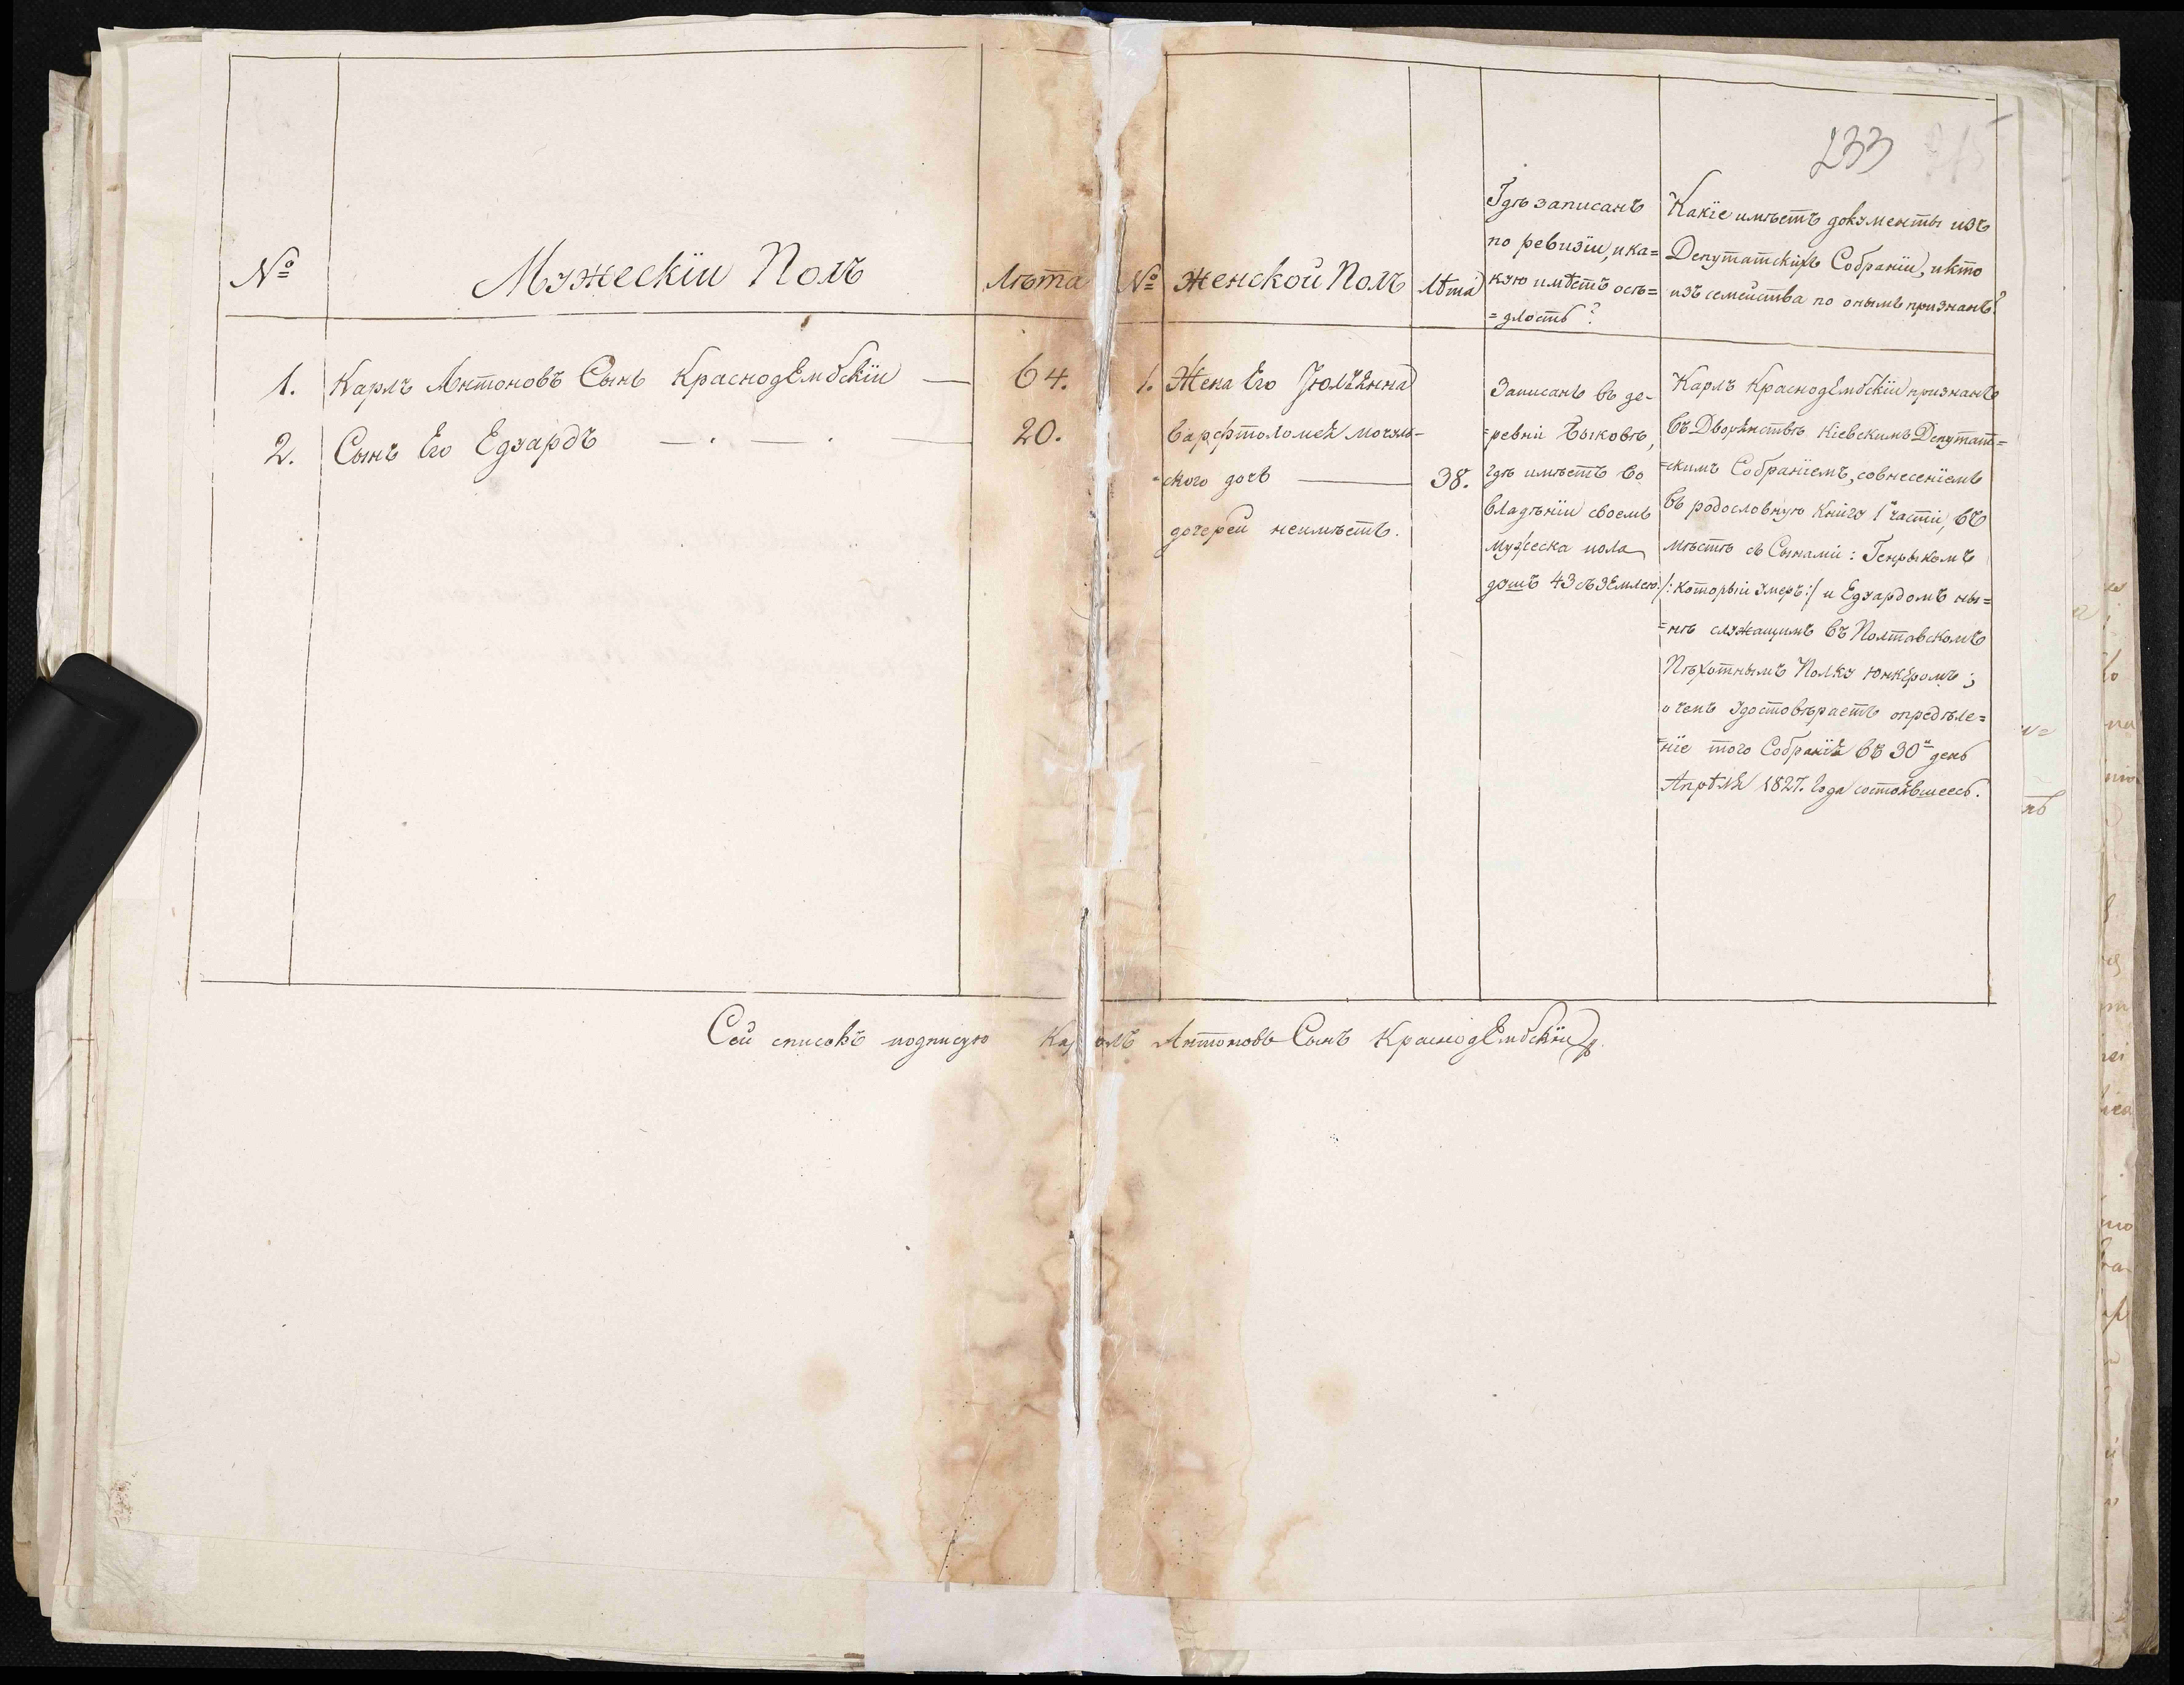 233
№
Мужескіи Полъ
Лѣта
№
Женской Полъ
Лѣта
Гдѣ записанъ
по ревизіи, и ка=
кую имѣетъ осѣ=
=длость?
Какіе имѣетъ документы изъ
Депутатскихъ Собраніи, и кто
изъ семейства по онымъ признанъ?
1. Карлъ Антоновъ Сынъ Краснодембскіи —
64.
2. Сынъ Его Едуардъ — . — . —
20.
1. Жена Его Юліянна
Варфтоломея Мочуль-
=ского дочь —
38.
дочерей неимѣетъ.
Записанъ въ де-
=ревни Быковѣ,
гдѣ имѣетъ во
владѣніи своемъ
мужеска пола
душъ 43 съ землею
Карлъ Краснодембскіи признанъ
въ Дворянствѣ Кіевскимъ Депутат=
=скимъ Собраніемъ, совнесеніемъ
въ родословную Книгу 1 части, въ
мѣстѣ съ Сынами: Генрыкомъ
/: которыи умеръ :/ и Едуардомъ ны=
=нѣ служащимъ въ Полтавскомъ
Пѣхотнымъ Полку Юнкеромъ;
о чемъ удостовѣраетъ опредѣле=
=ніе того Собранія въ 30й день
Апрѣля 1827. Года состоявшеесь.
Сей списокъ подписую Карлъ Антоновъ Сынъ Краснодембскіи